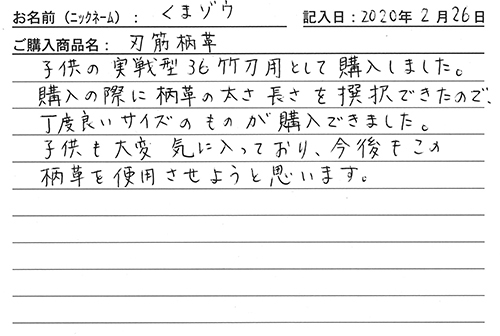 お名前（ニックネーム）： くまゾウ 記入日：2020年2月26日
ご購入商品名： 刃筋柄革
子供の実戦型36竹刀用として購入しました。
購入の際に柄革の太さ長さを撰択できたので、
丁度良いサイズのものが購入できました。
子供も大変気に入っており、今後もこの
柄革を使用させようと思います。